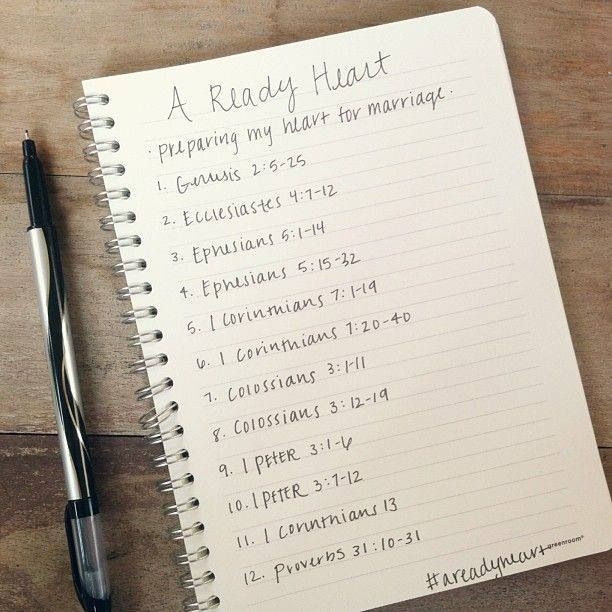 A Ready Heart
. preparing my heart for marriage.
1. Genesis 2:5-25
2. Ecclesiastes 4:7-12
3. Ephesians 5:1-14
4. Ephesians 5:15-32
5. 1 Corinthians 7:1-19
6. 1 Corinthians 7:20-40
7. Colossians 3:1-11
8. Colossians 3:12-19
9. 1 PETER 3:1-6
10. 1 PETER 3:7-12
11. 1 Corinthians 13
12. Proverbs 31:10-31
greenroom®
#areadyheart